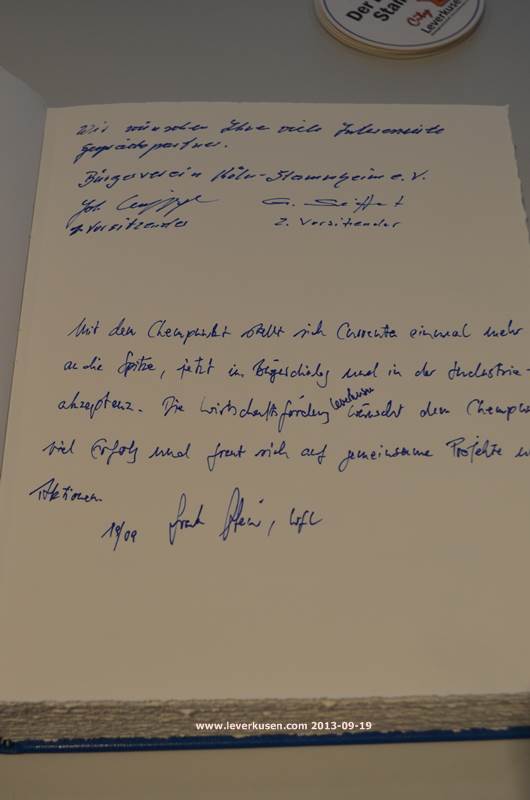 Der
Stam
City
Leverkusen
Wir wünschen Ihne viele Interessante
gesprächspartner.
Bürgerverein Köln-Stammheim e.V.
Joh G. Seiffert
1. Vorsitzender 2. Vorsitzender
Mit dem Chempunkt stellt sich Currenta einmal mehr
an die Spitze, jetzt im Bürgerdialog und in der Industrie-
akzeptanz. Die Wirtschaftsförderung Leverkusen wünscht dem Chempun
viel Erfolg und freut sich auf gemeinsame Projekte u
Aktionen
19/09 Frank Stein, WfL
www.leverkusen.com 2013-09-19